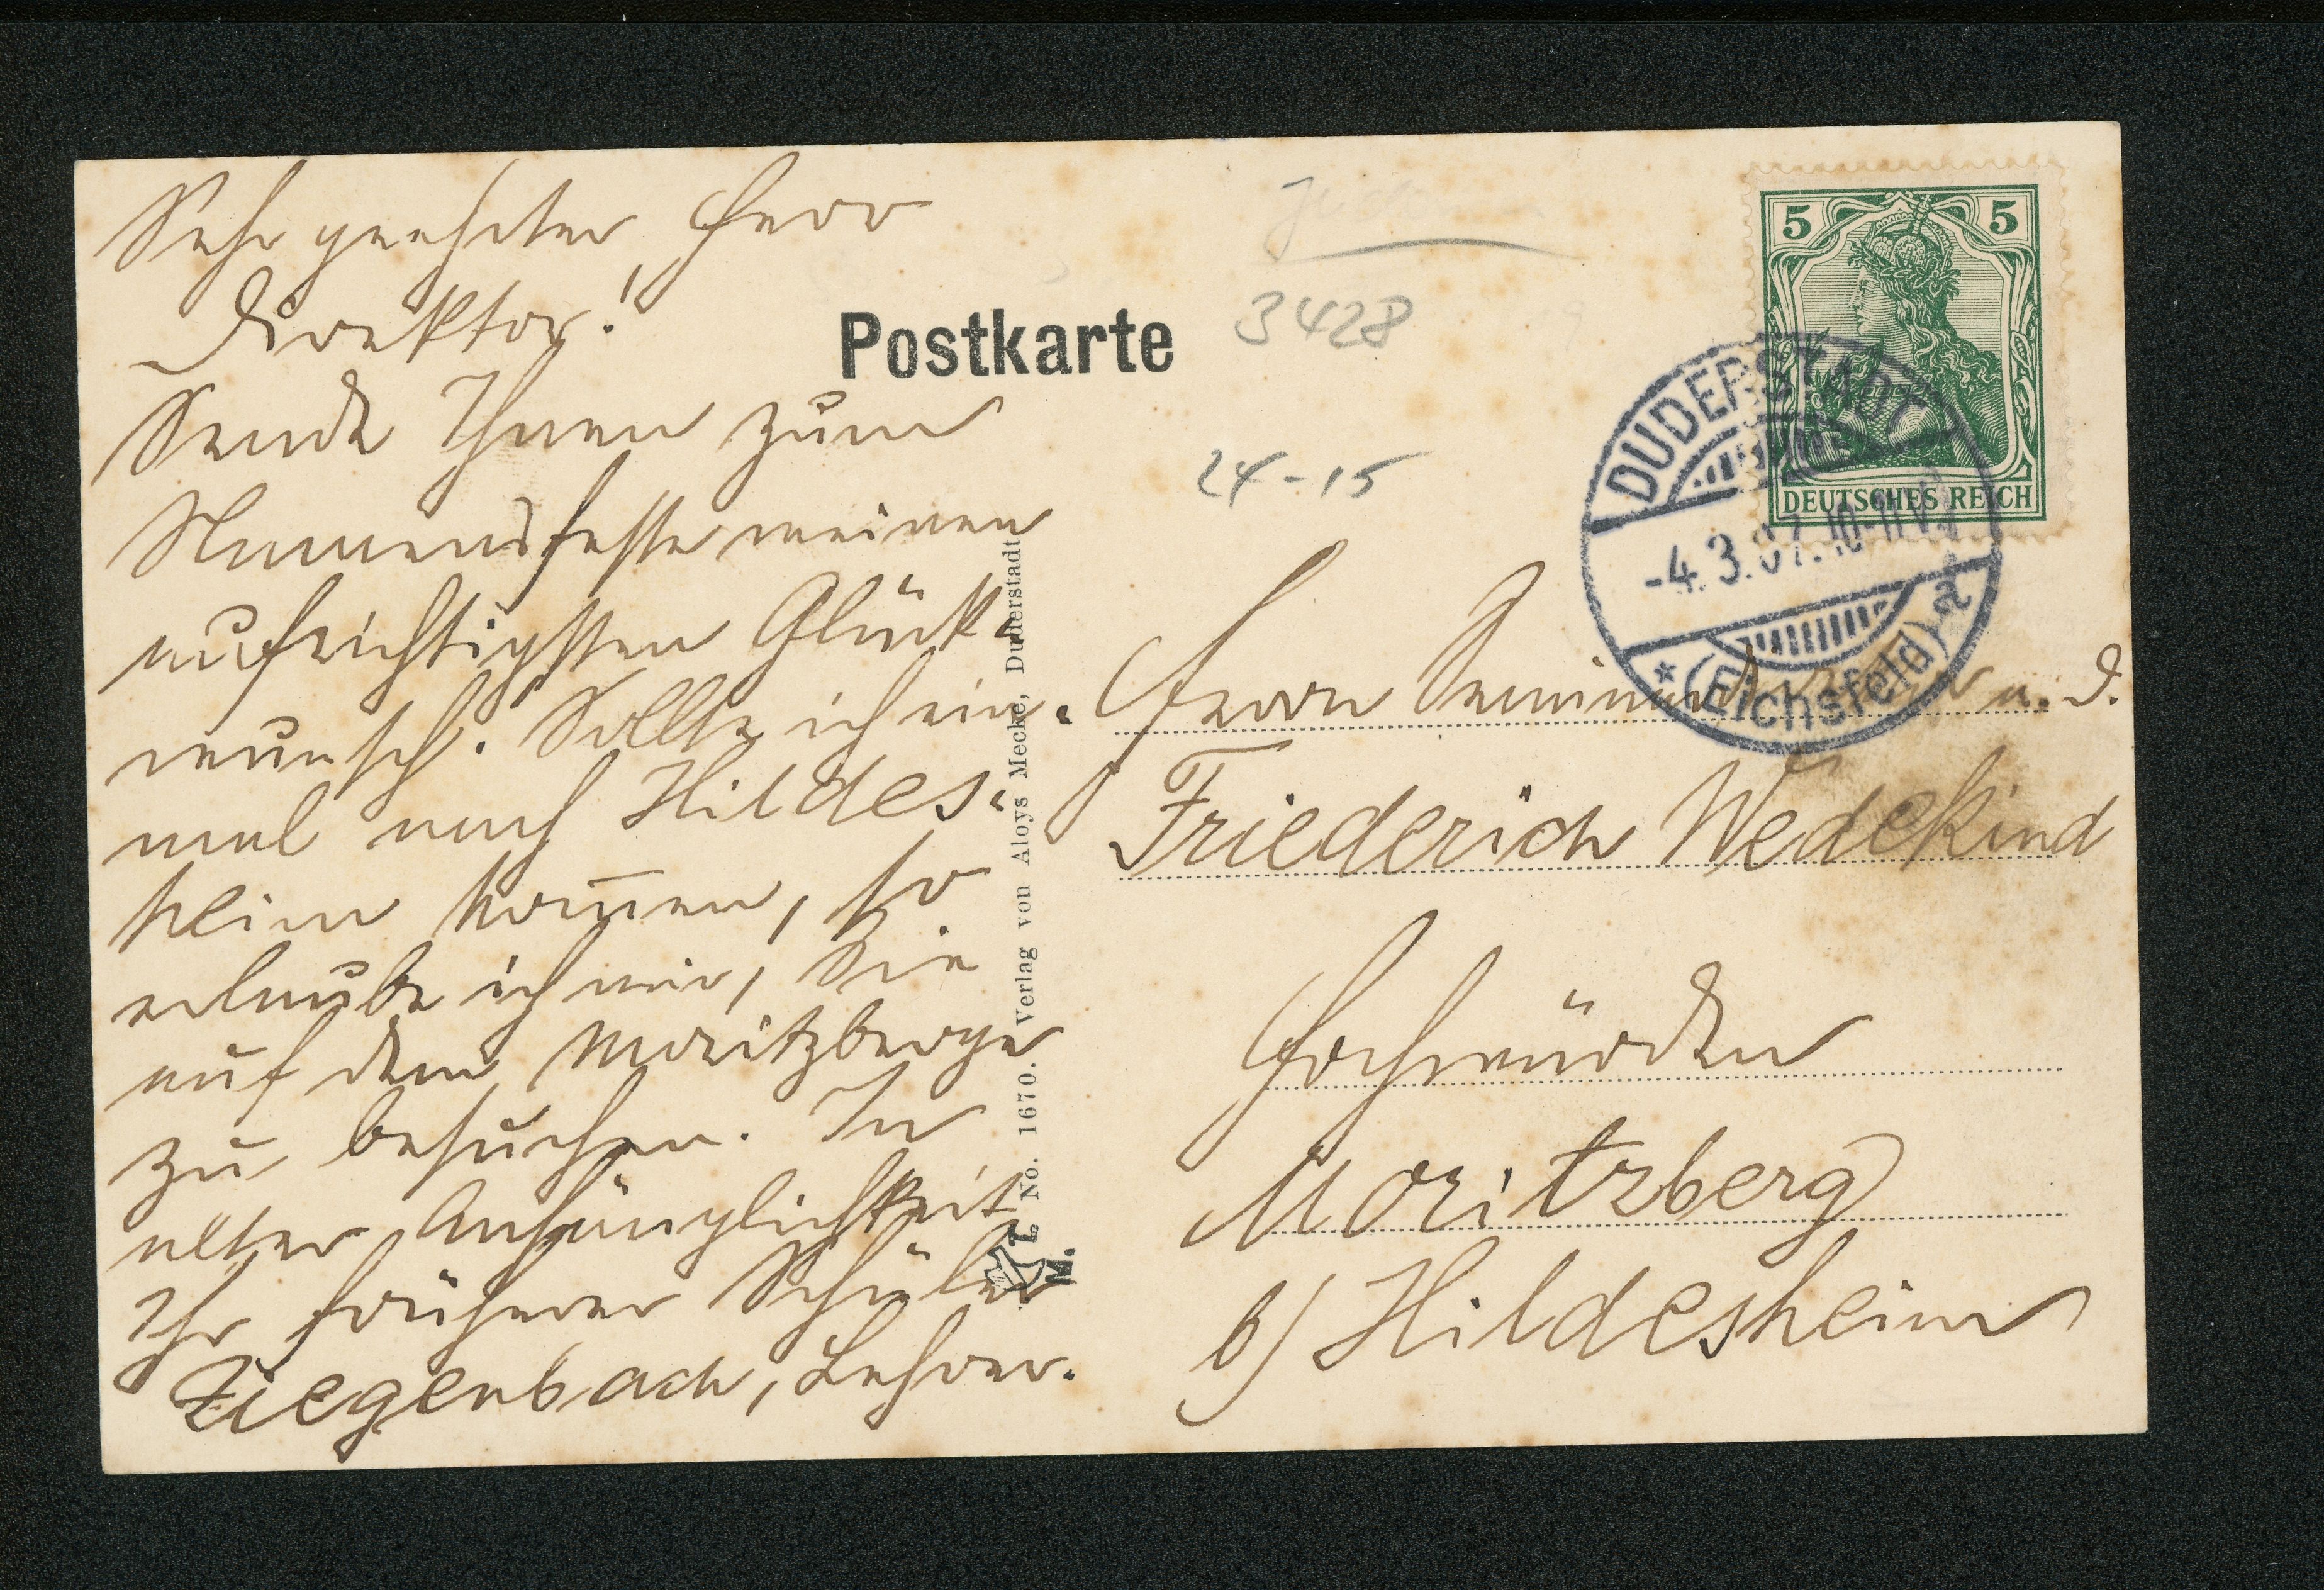 Sehr geehrter Herr
Direktor!
Sende Ihnen zum
Namensfeste meinen
aufrichtigsten Glück-
wunsch. Sollte ich ein-
mal nach Hildes-
heim kom̅en, so
erlaube ich mir, Sie
auf dem Moritzberge
zu besuchen. In
alter Anhänglichkeit
Ihr früherer Schüler
Ziegenbach, Lehrer.
Postkarte
3428
24-15
5 5
DEUTSCHES REICH
DUDERSTADT
-4.3.07.10-11V.
* (Eichsfeld) a
M. L No. 1670. Verlag von Aloys Mecke, Duderstadt
Herrn u. D.
Friederich Wedekind
Hochwürden
Moritzberg
b/ Hildesheim